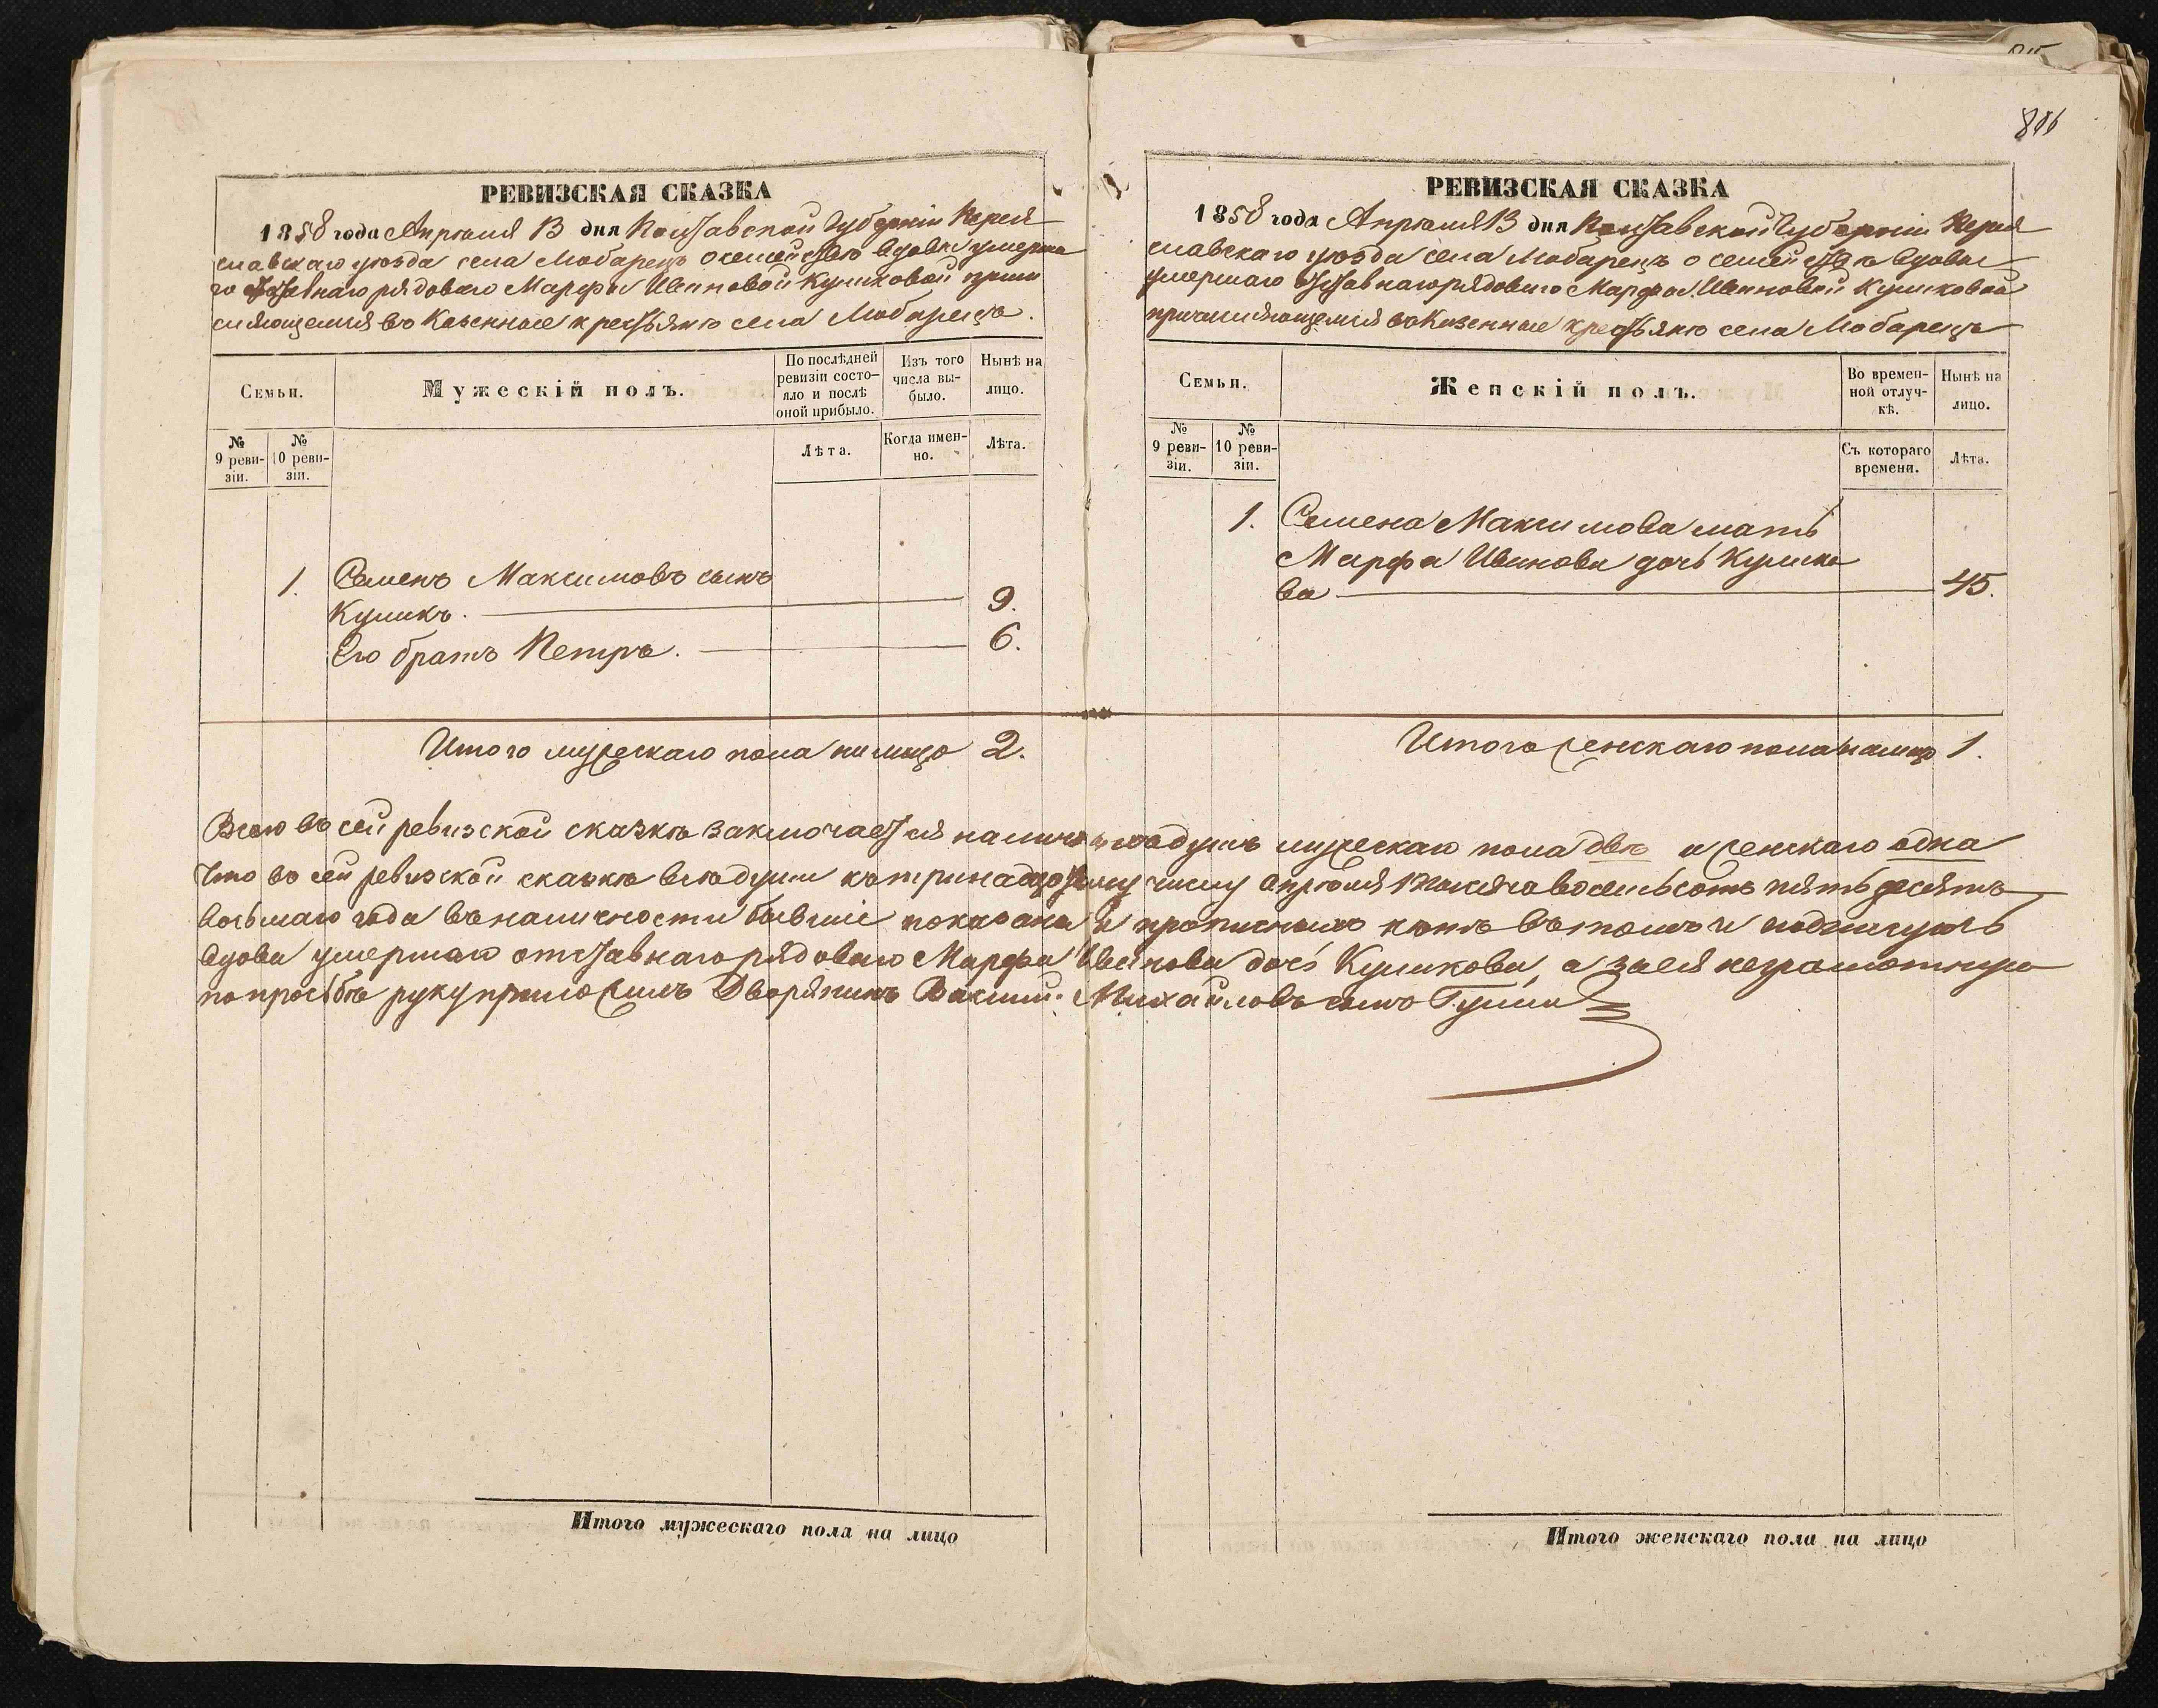 886
РЕВИЗСКАЯ СКАЗКА
1858 года Апрѣля 13 дня Полтавской Губерніи Перея
славскаго уѣзда села Мабарецъ о семействѣ вдовы умерша
го отставнаго рядоваго Марфы Ивановой Куликовой причи
сляющемся въ Казенные крестьяне села Мабарецъ.
Семьи.
Мужескій полъ.
По послѣдней
ревизіи состо-
яло и послѣ
оной прибыло.
Изъ того
числа вы-
было.
Нынѣ на
лицо.
№
9 реви-
зіи.
№
10 реви-
зіи.
Лѣта.
Когда имен-
но.
Лѣта.
1. Семенъ Максимовъ сынъ
Куликъ. 9.
Его братъ Петръ. 6.
Итого мужескаго пола на лицо 2.
РЕВИЗСКАЯ СКАЗКА
1858 года Апрѣля 13 дня Полтавской Губерніи Перея
славскаго уѣзда села Мабарецъ о семействѣ вдовы
умершаго отставнаго рядоваго Марфы Ивановой Куликовой
причисляющемся въ Казенные крестьяне села Мабарецъ
Семьи.
Женскій полъ.
Во времен-
ной отлуч-
кѣ.
Нынѣ на
лицо.
№
9 реви-
зіи.
№
10 реви-
зіи.
Съ котораго
времени.
Лѣта.
1. Семена Максимова мать
Марфа Иванова дочь Кулико
ва 45.
Итого женскаго пола на лицо 1.
Всего въ сей ревизской сказкѣ заключается наличныхъ душъ мужескаго пола двѣ и женскаго одна
Что въ сей ревизской сказкѣ всѣ души къ тринадцатому числу Апрѣля тысяча восемьсотъ пятьдесятъ
восьмаго года въ наличности бывшіе показаны и прописныхъ нѣтъ въ томъ и подпишусь
вдова умершаго отставнаго рядоваго Марфа Иванова дочь Куликова, а за нея неграмотную
по просьбѣ руку приложилъ Дворянинъ Михайловъ сынъ
Итого мужескаго пола на лицо
Итого женскаго пола на лицо